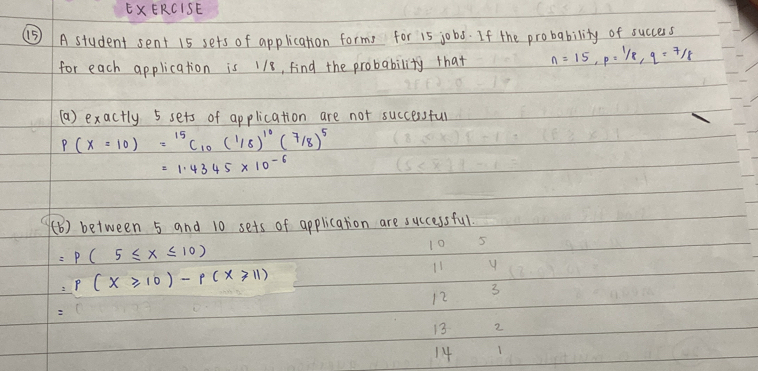 EXERCISE
(15) A student sent 15 sets of application forms for 15 jobs. If the probability of success
for each application is 1/8, find the probability that n = 15, p = 1/8, q = 7/8
(a) exactly 5 sets of application are not successful
P(X = 10) = ¹⁵C₁₀ (1/8)¹⁰ (7/8)⁵
= 1.4345 × 10⁻⁶
(b) between 5 and 10 sets of application are successful.
= P( 5 ≤ X ≤ 10)
= P (X ≥ 10) - P(X ≥ 11)
=
10 5
11 4
12 3
13 2
14 1